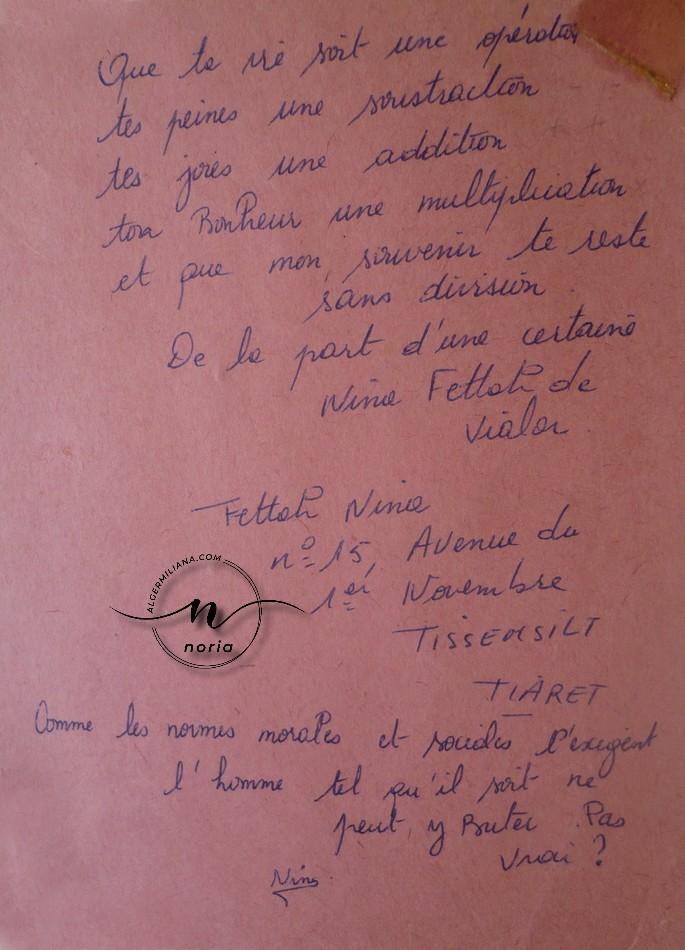 Que ta vie soit une opération
tes peines une soustraction
tes joies une addition
ton Bonheur une multiplication
et que mon souvenir te reste
sans division.
De la part d'une certaine
Nina Fettah de
Vialar.
Fettah Nina
n° 15, Avenue du
1er Novembre
TISSEMSILT
TIARET
ALGERMILIANA.COM
n
noria
Comme les normes morales et sociales l'exigent
l'homme tel qu'il soit ne
peut y Buter. Pas
vrai ?
Nina